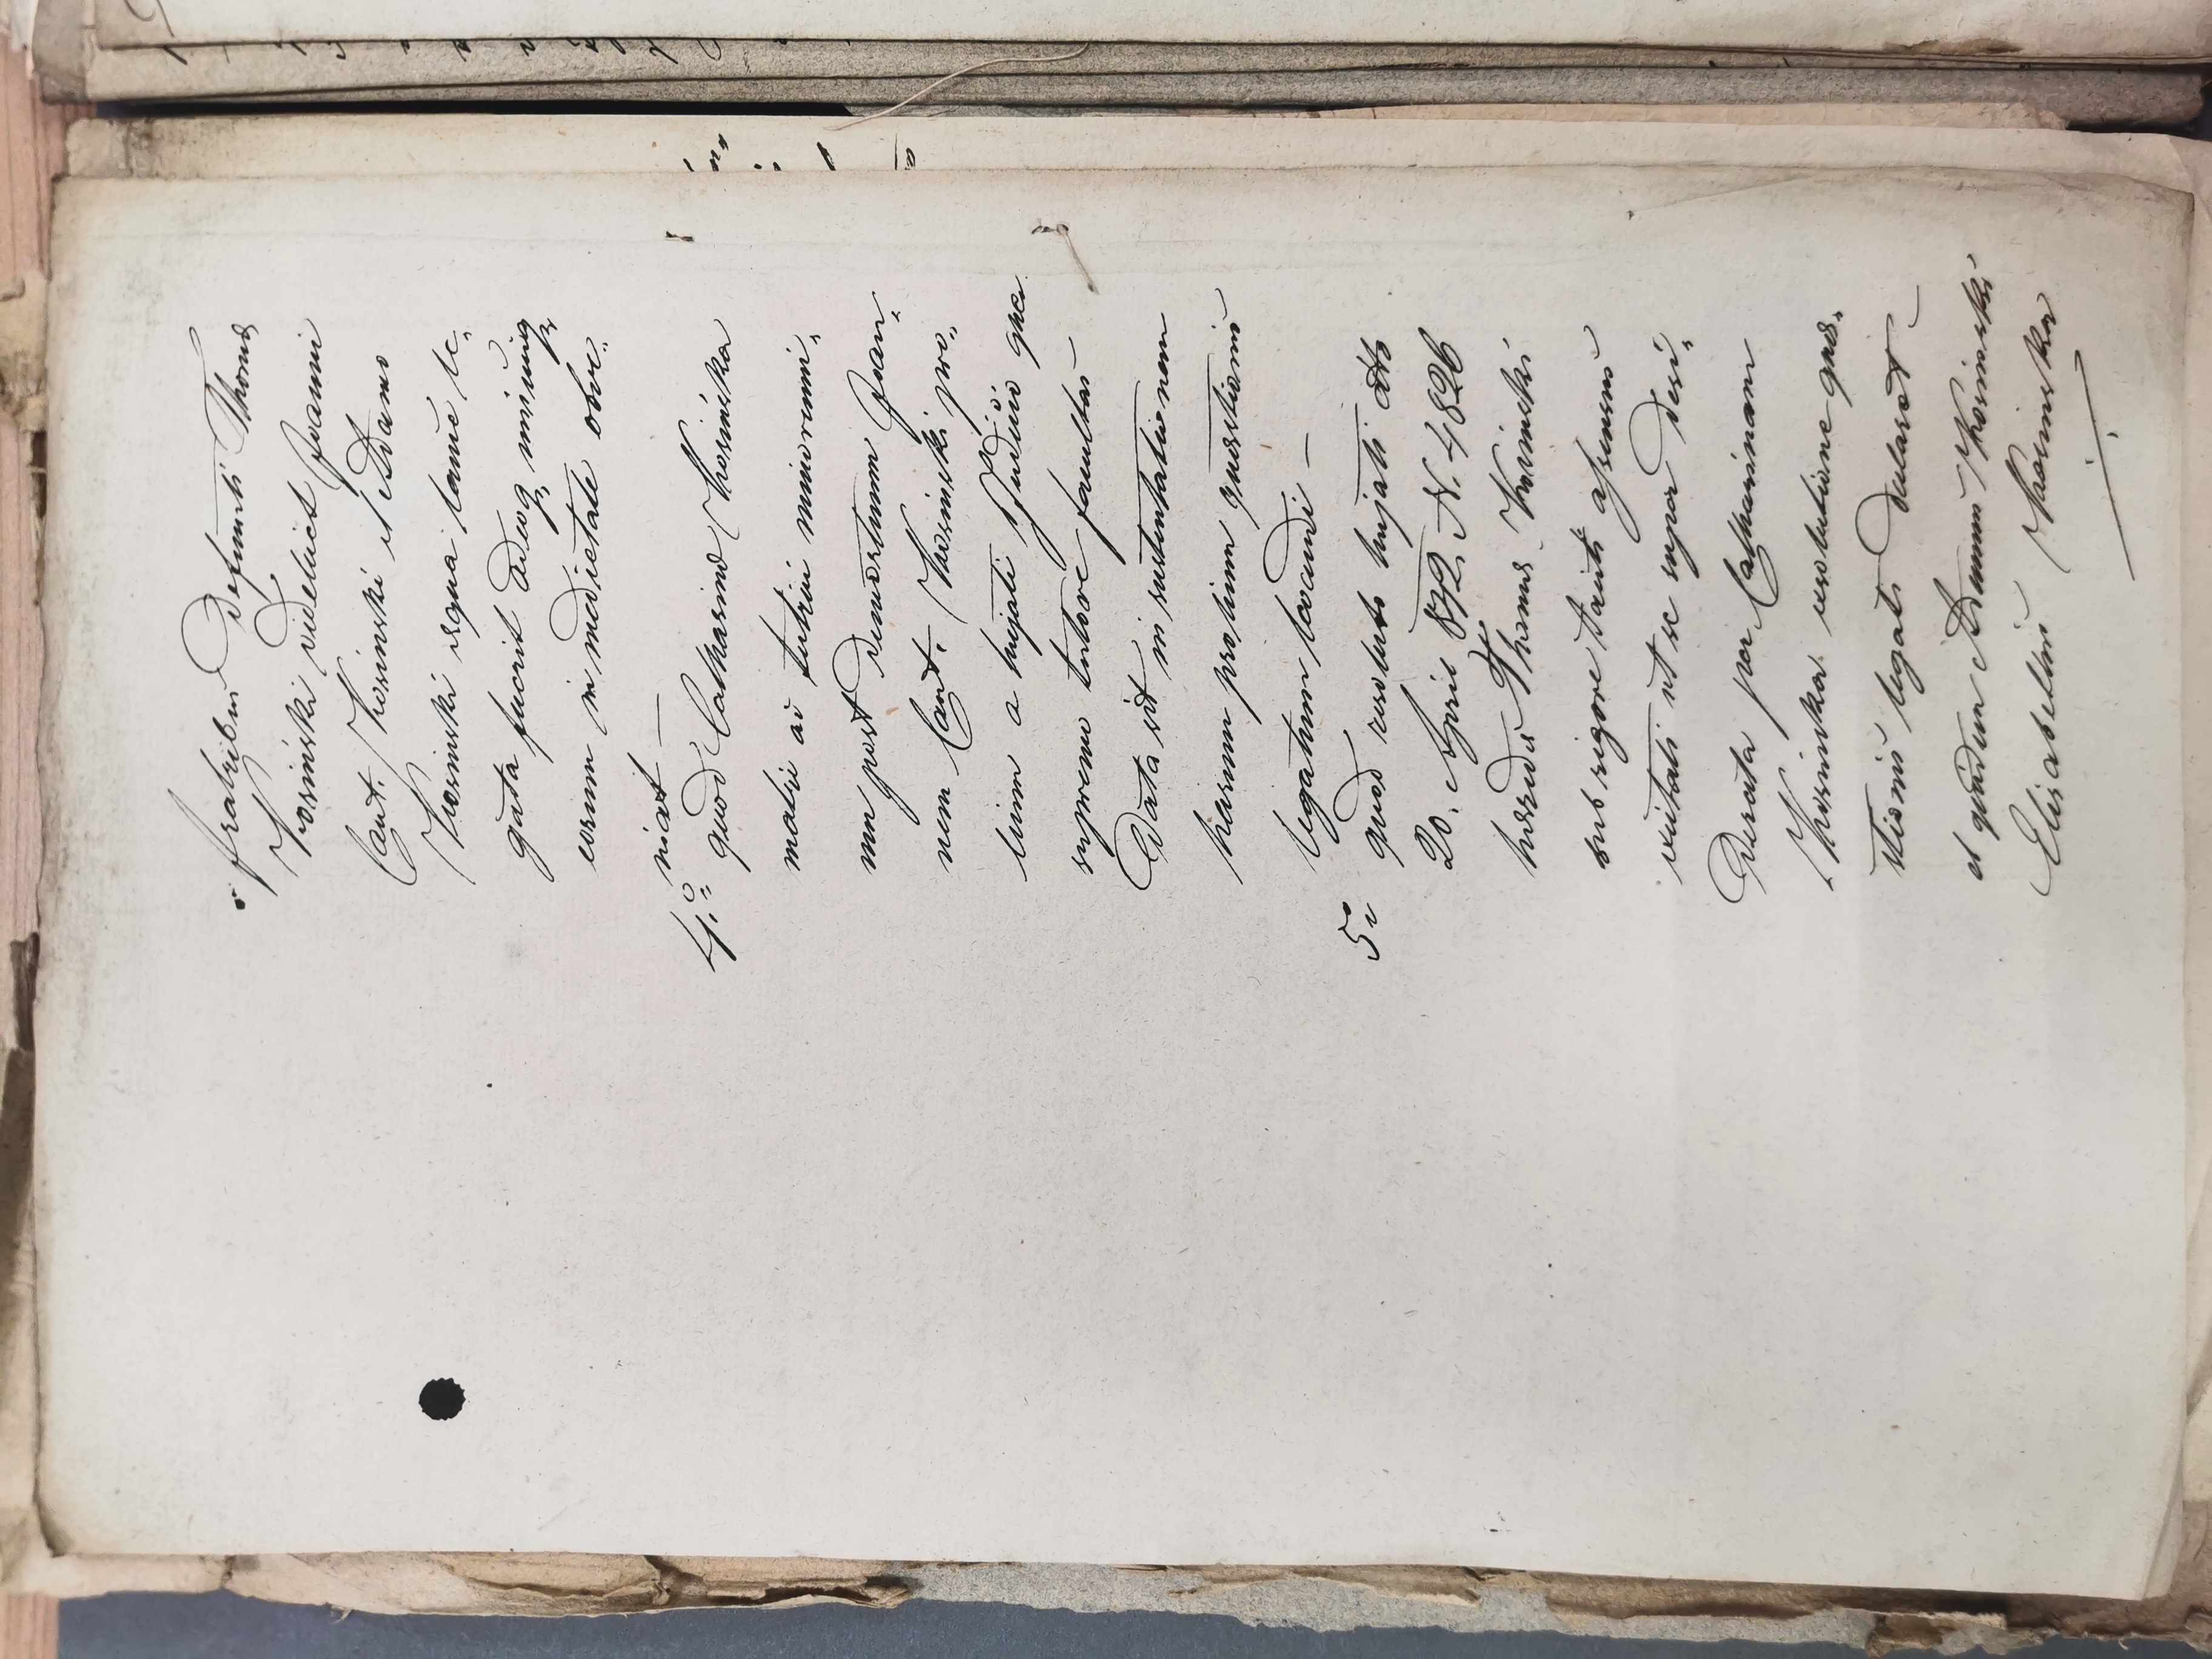 fratribus Defuncti Thomæ
Kosinski videlicet Joanni
Cant. Kosinski et Adamo
Kosinski æqua lance le„
gata fuerit adeoq minusq
eorum in medietate obve„
niat —
4to quod Catharinæ Kosinska
matri ac tutrici minorenni„
um post demortuum Joan„
nem Cant. Kosinski pro„
lium a hujati Judicio qua
supremo tutore facultas
Data sit in sustentationem
harum prolium quæstionis
legatum levandi —
5to quod resoluto hujati ddto
20. Aprili 872 N. 4826
hæredes Thomæ Kosinski
sub rigore taciti assensus
excitati ut se super desi„
Derata per Catharinam
Kosinska resolutione quæ„
stionis legati Declarent —
et quidem Adamus Kosinski
Elisabetha Kosinska